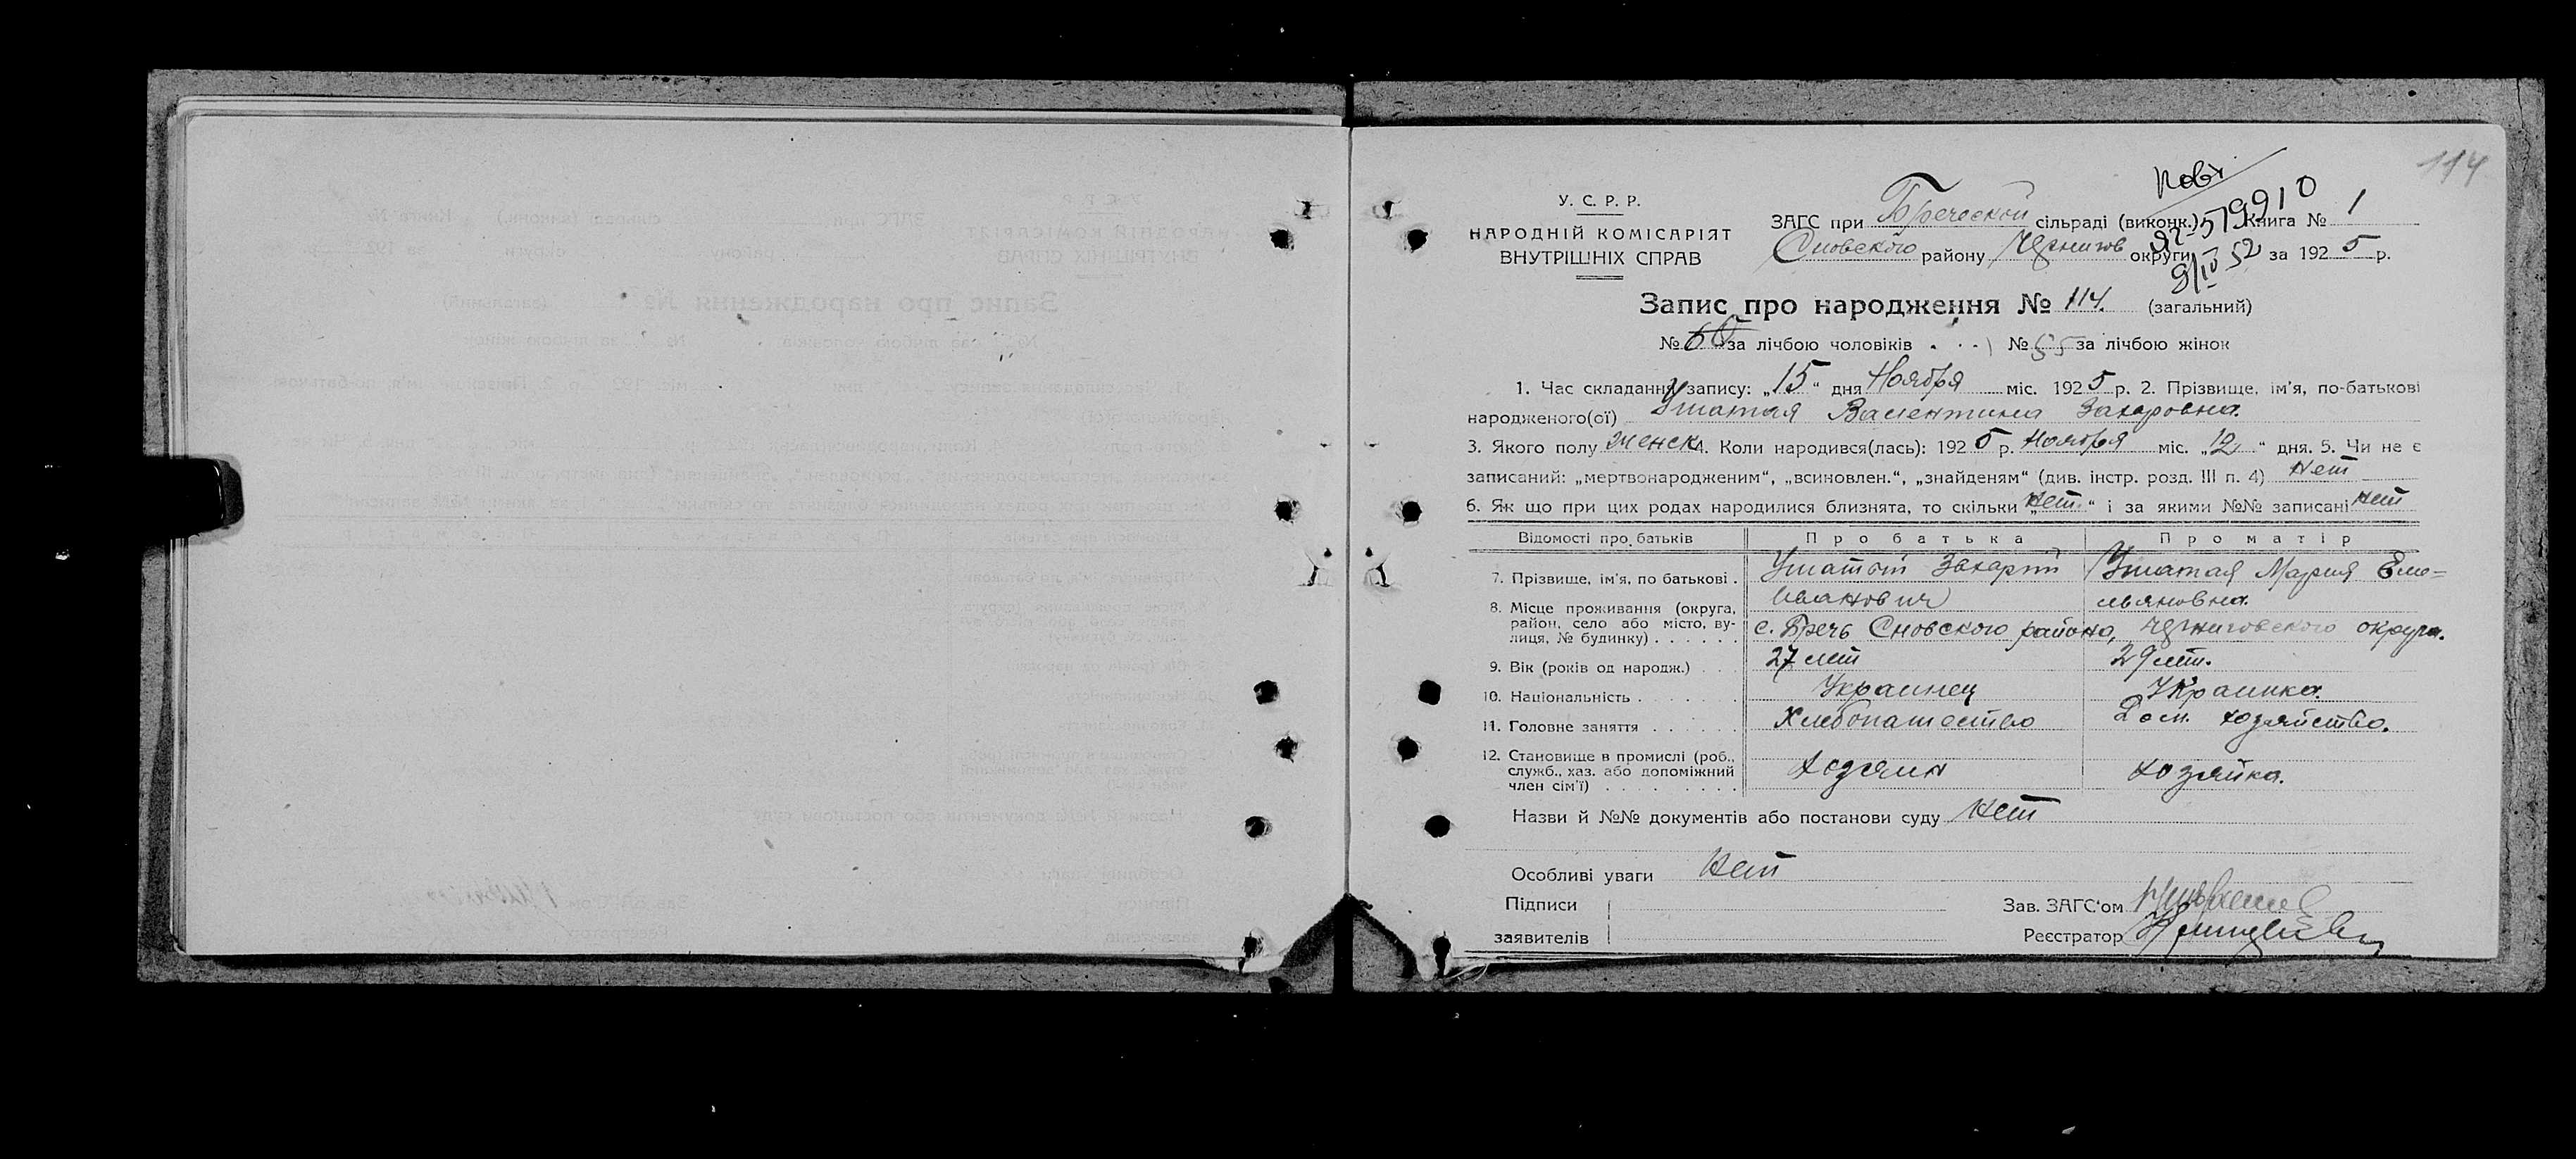 114
Пов.
У. С. Р. Р.
НАРОДНІЙ КОМІСАРІЯТ
ВНУТРІШНІХ СПРАВ
ЗАГС при Бреческой сільраді (виконк.) Книга № 1
Сновского району Чернигов округи за 1925 р.
519910
9/IV 52
Запис про народження № 114. (загальний)
№ 60 за лічбою чоловіків № 55 за лічбою жінок
1. Час складання запису: „15“ дня Ноября міс. 1925 р. 2. Прізвище, ім'я, по-батькові
народженого(ої) Ушатая Валентина Захаровна.
3. Якого полу женск. 4. Коли народився(лась): 1925 р. Ноября міс. „12“ дня. 5. Чи не є
записаний: „мертвонародженим“, „всиновлен.“, „знайденям“ (див. інстр. розд. III п. 4) нет
6. Як що при цих родах народилися близнята, то скільки „нет“ і за якими №№ записані нет
Відомості про батьків Про батька Про матір
7. Прізвище, ім'я, по батькові . Ушатый Захарий Иванович Ушатая Мария Емельяновна.
8. Місце проживання (округа, район, село або місто, вулиця, № будинку) . . . . . . с. Бречь Сновского района, Черниговского округа.
9. Вік (років од народж.) . . . 27 лет 29 лет.
10. Національність . . . . . . . Украинец Украинка.
11. Головне заняття . . . . . . Хлебопашество Дом. хозяйство.
12. Становище в промислі (роб., служб., хаз. або допоміжний член сім'ї) . . . . . . . . . хозяин хозяйка.
Назви й №№ документів або постанови суду нет
Особливі уваги нет
Підписи
заявителів
Зав. ЗАГС'ом
Реєстратор